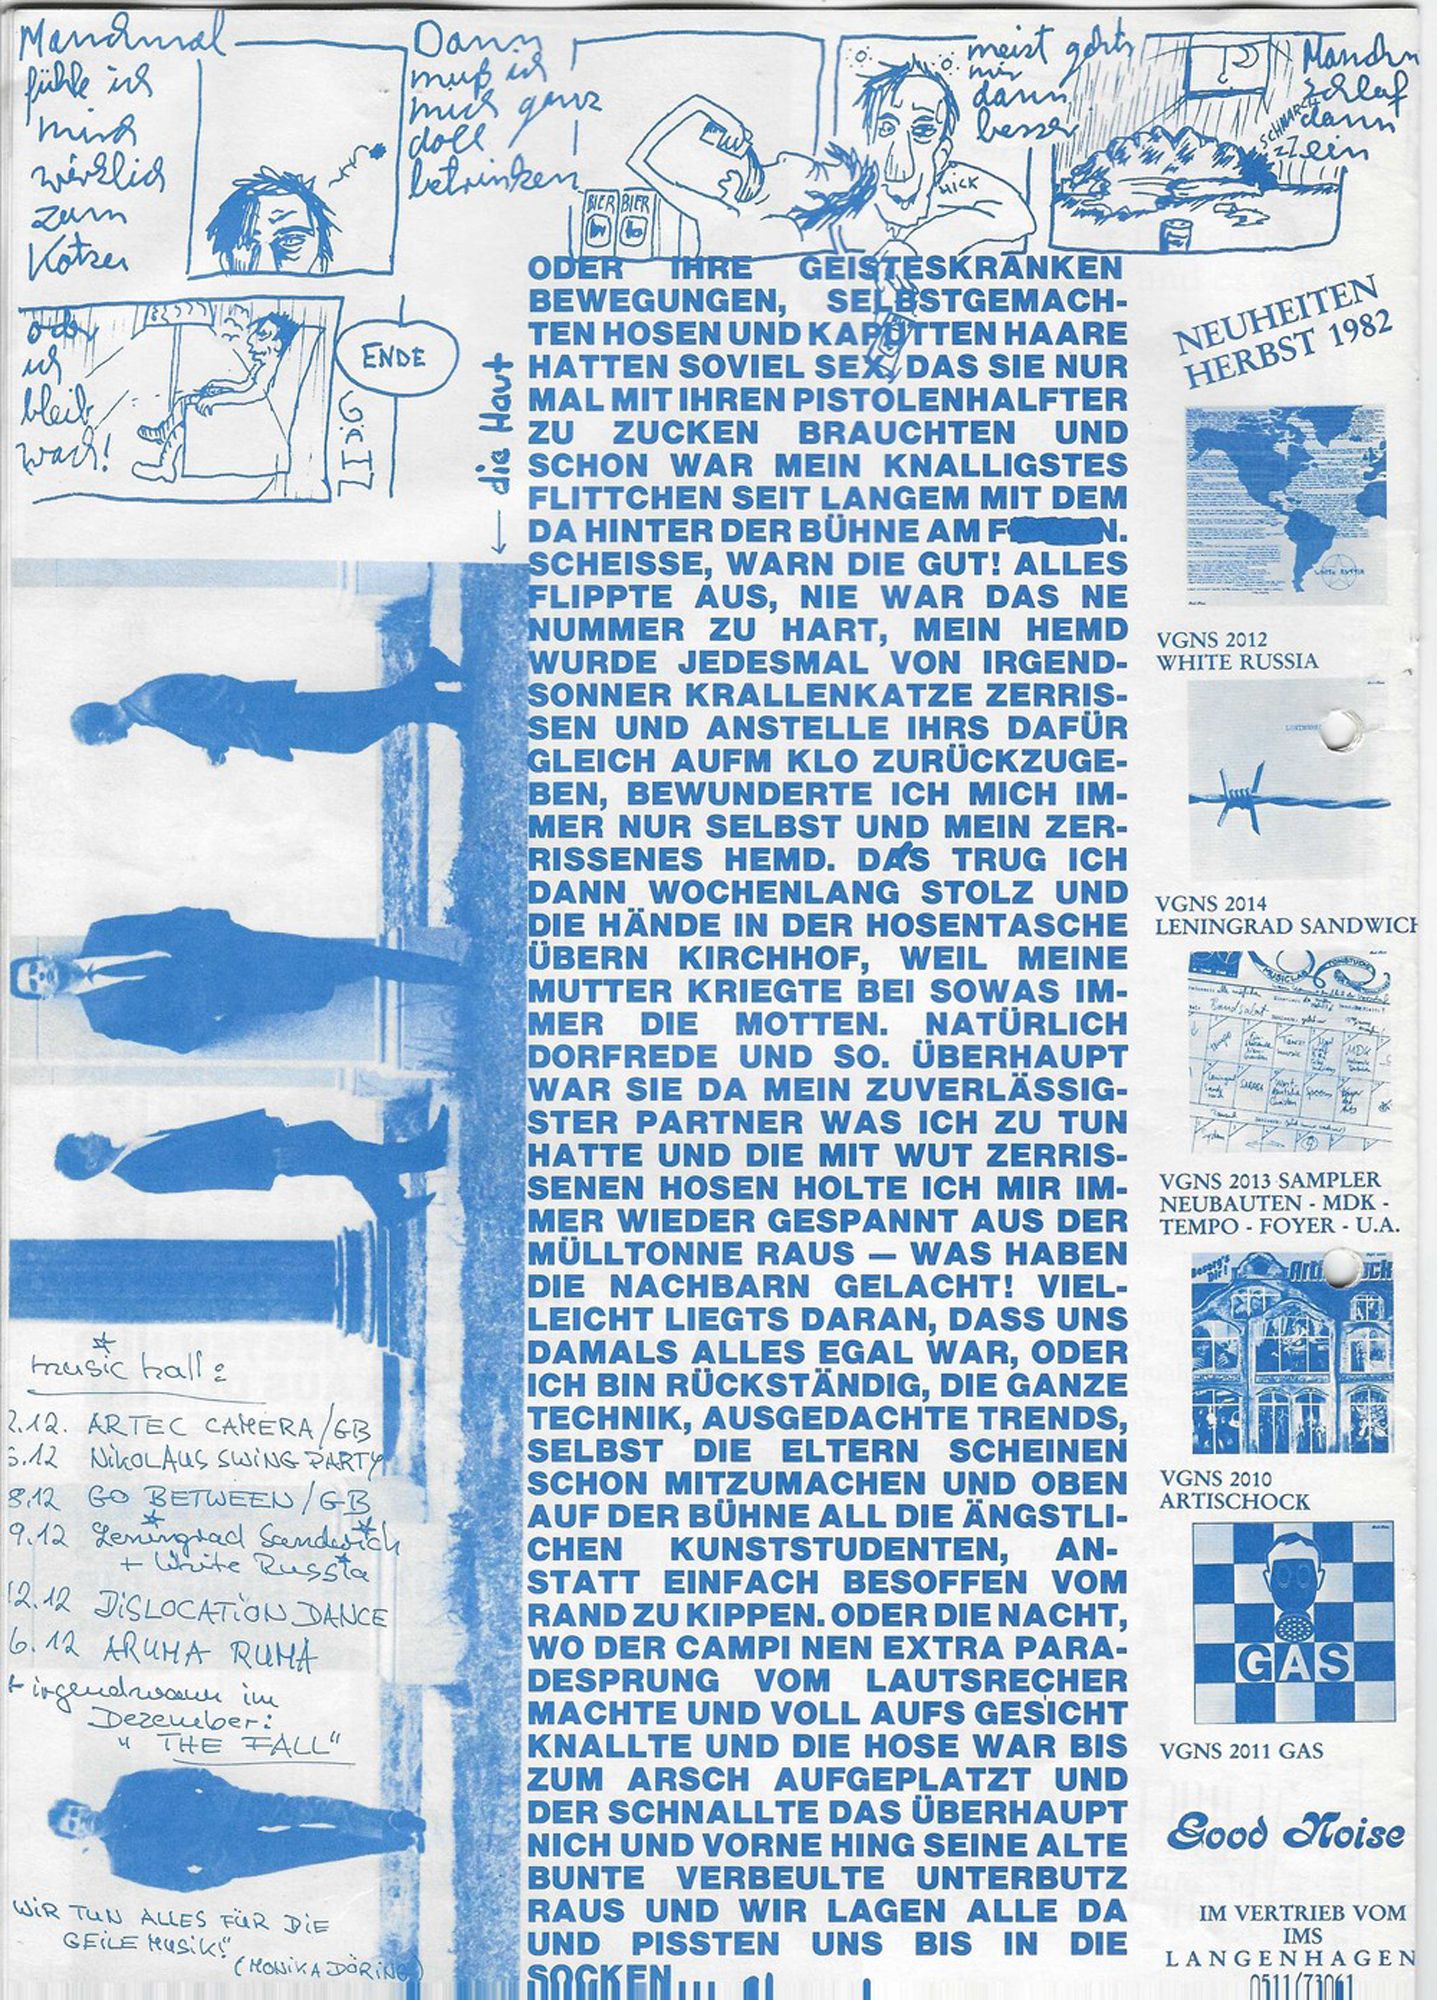 Manchmal
fühle ich
mich
wirklich
zum
Kotzen
Dann
muß ich
mich ganz
doll
betrinken
BIER BIER
meist gehts
mir
dann
besser
HICK
Manchm
schlaf
dann
ein
SCHNARCH
ZZ
oder
ich
bleib
wach!
ENDE
die Haut
ODER IHRE GEISTESKRANKEN
BEWEGUNGEN, SELBSTGEMACH-
TEN HOSEN UND KAPUTTEN HAARE
HATTEN SOVIEL SEX, DAS SIE NUR
MAL MIT IHREN PISTOLENHALFTER
ZU ZUCKEN BRAUCHTEN UND
SCHON WAR MEIN KNALLIGSTES
FLITTCHEN SEIT LANGEM MIT DEM
DA HINTER DER BÜHNE AM F N.
SCHEISSE, WARN DIE GUT! ALLES
FLIPPTE AUS, NIE WAR DAS NE
NUMMER ZU HART, MEIN HEMD
WURDE JEDESMAL VON IRGEND-
SONNER KRALLENKATZE ZERRIS-
SEN UND ANSTELLE IHRS DAFÜR
GLEICH AUFM KLO ZURÜCKZUGE-
BEN, BEWUNDERTE ICH MICH IM-
MER NUR SELBST UND MEIN ZER-
RISSENES HEMD. DAS TRUG ICH
DANN WOCHENLANG STOLZ UND
DIE HÄNDE IN DER HOSENTASCHE
ÜBERN KIRCHHOF, WEIL MEINE
MUTTER KRIEGTE BEI SOWAS IM-
MER DIE MOTTEN. NATÜRLICH
DORFREDE UND SO. ÜBERHAUPT
WAR SIE DA MEIN ZUVERLÄSSIG-
STER PARTNER WAS ICH ZU TUN
HATTE UND DIE MIT WUT ZERRIS-
SENEN HOSEN HOLTE ICH MIR IM-
MER WIEDER GESPANNT AUS DER
MÜLLTONNE RAUS — WAS HABEN
DIE NACHBARN GELACHT! VIEL-
LEICHT LIEGTS DARAN, DASS UNS
DAMALS ALLES EGAL WAR, ODER
ICH BIN RÜCKSTÄNDIG, DIE GANZE
TECHNIK, AUSGEDACHTE TRENDS,
SELBST DIE ELTERN SCHEINEN
SCHON MITZUMACHEN UND OBEN
AUF DER BÜHNE ALL DIE ÄNGSTLI-
CHEN KUNSTSTUDENTEN, AN-
STATT EINFACH BESOFFEN VOM
RAND ZU KIPPEN. ODER DIE NACHT,
WO DER CAMPI NEN EXTRA PARA-
DESPRUNG VOM LAUTSRECHER
MACHTE UND VOLL AUFS GESICHT
KNALLTE UND DIE HOSE WAR BIS
ZUM ARSCH AUFGEPLATZT UND
DER SCHNALLTE DAS ÜBERHAUPT
NICH UND VORNE HING SEINE ALTE
BUNTE VERBEULTE UNTERBUTZ
RAUS UND WIR LAGEN ALLE DA
UND PISSTEN UNS BIS IN DIE
SOCKEN
music hall:
2.12. ARTEC CAMERA/GB
5.12 NIKOLAUS SWING PARTY
8.12 GO BETWEEN/GB
9.12 Leningrad Sandwich
+ White Russia
12.12 DISLOCATION DANCE
6.12 ARUMA RUMA
+ irgendwann im
Dezember:
"THE FALL"
WIR TUN ALLES FÜR DIE
GEILE MUSIK!"
(MONIKA DÖRING)
NEUHEITEN
HERBST 1982
VGNS 2012
WHITE RUSSIA
VGNS 2014
LENINGRAD SANDWICH
VGNS 2013 SAMPLER
NEUBAUTEN - MDK -
TEMPO - FOYER - U.A.
VGNS 2010
ARTISCHOCK
GAS
VGNS 2011 GAS
Good Noise
IM VERTRIEB VOM
IMS
LANGENHAGEN
0511/73061